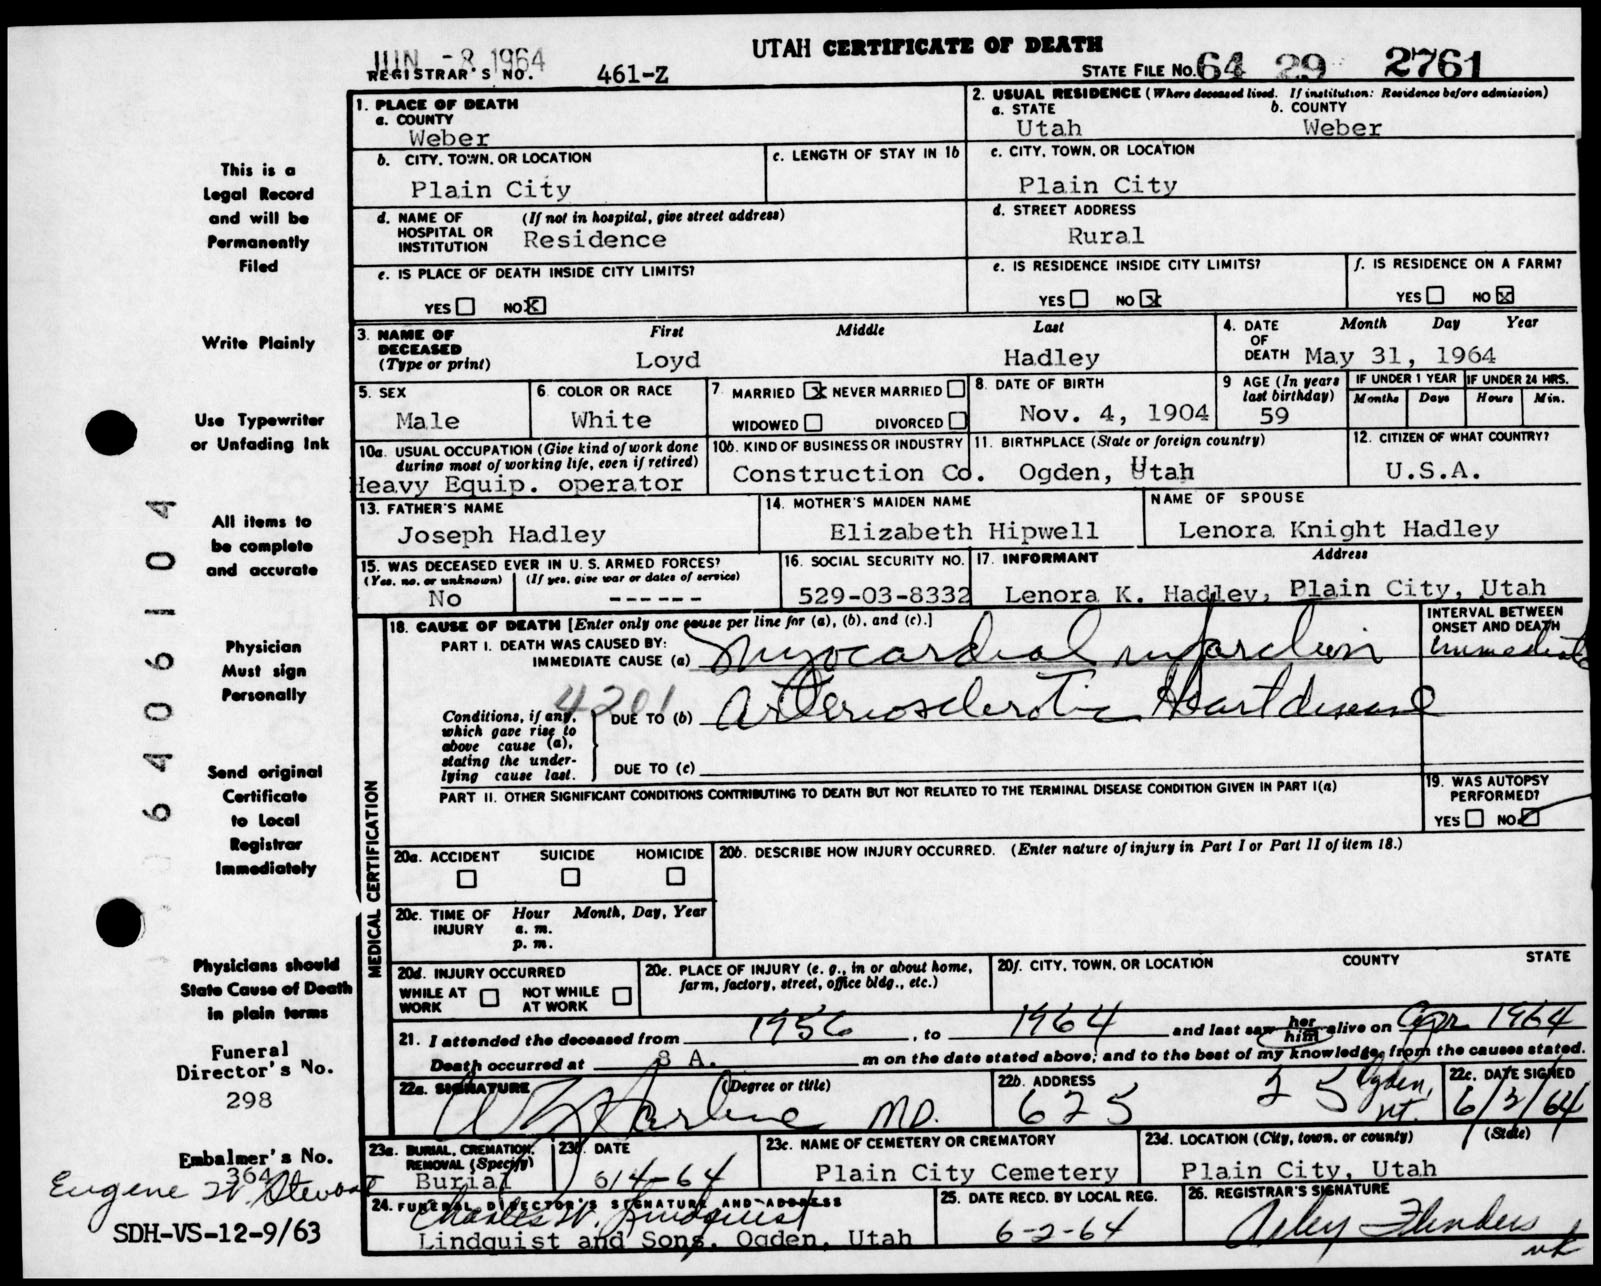 JUN -8 1964
UTAH CERTIFICATE OF DEATH
REGISTRAR'S NO. 461-Z
STATE FILE NO. 64 29 2761
This is a
Legal Record
and will be
Permanently
Filed
Write Plainly
Use Typewriter
or Unfading Ink
All items to
be complete
and accurate
Physician
Must sign
Personally
Send original
Certificate
to Local
Registrar
Immediately
Physicians should
State Cause of Death
in plain terms
Funeral
Director's No.
298
Embalmer's No.
364
Eugene W. Stewart
SDH-VS-12-9/63
64061104
1. PLACE OF DEATH
a. COUNTY
Weber
2. USUAL RESIDENCE (Where deceased lived. If institution: Residence before admission)
a. STATE b. COUNTY
Utah Weber
b. CITY, TOWN, OR LOCATION
Plain City
c. LENGTH OF STAY IN 1b
c. CITY, TOWN, OR LOCATION
Plain City
d. NAME OF HOSPITAL OR INSTITUTION (If not in hospital, give street address)
Residence
d. STREET ADDRESS
Rural
e. IS PLACE OF DEATH INSIDE CITY LIMITS?
YES NO X
e. IS RESIDENCE INSIDE CITY LIMITS?
YES NO X
f. IS RESIDENCE ON A FARM?
YES NO X
3. NAME OF DECEASED (Type or print)
First Middle Last
Loyd Hadley
4. DATE OF DEATH Month Day Year
May 31, 1964
5. SEX
Male
6. COLOR OR RACE
White
7. MARRIED X NEVER MARRIED
WIDOWED DIVORCED
8. DATE OF BIRTH
Nov. 4, 1904
9 AGE (In years last birthday)
59
IF UNDER 1 YEAR IF UNDER 24 HRS.
Months Days Hours Min.
10a. USUAL OCCUPATION (Give kind of work done during most of working life, even if retired)
Heavy Equip. operator
10b. KIND OF BUSINESS OR INDUSTRY
Construction Co.
11. BIRTHPLACE (State or foreign country)
Ogden, Utah
12. CITIZEN OF WHAT COUNTRY?
U.S.A.
13. FATHER'S NAME
Joseph Hadley
14. MOTHER'S MAIDEN NAME
Elizabeth Hipwell
NAME OF SPOUSE
Lenora Knight Hadley
15. WAS DECEASED EVER IN U. S. ARMED FORCES?
(Yes, no, or unknown) (If yes, give war or dates of service)
No ------
16. SOCIAL SECURITY NO.
529-03-8332
17. INFORMANT Address
Lenora K. Hadley, Plain City, Utah
MEDICAL CERTIFICATION
18. CAUSE OF DEATH [Enter only one cause per line for (a), (b), and (c).]
INTERVAL BETWEEN ONSET AND DEATH
PART I. DEATH WAS CAUSED BY:
IMMEDIATE CAUSE (a) Myocardial infarction Immediate
4201
Conditions, if any, which gave rise to above cause (a), stating the underlying cause last.
DUE TO (b) Arteriosclerotic Heart disease
DUE TO (c)
PART II. OTHER SIGNIFICANT CONDITIONS CONTRIBUTING TO DEATH BUT NOT RELATED TO THE TERMINAL DISEASE CONDITION GIVEN IN PART I(a)
19. WAS AUTOPSY PERFORMED?
YES NO
20a. ACCIDENT SUICIDE HOMICIDE
20b. DESCRIBE HOW INJURY OCCURRED. (Enter nature of injury in Part I or Part II of item 18.)
20c. TIME OF INJURY Hour Month, Day, Year
a. m.
p. m.
20d. INJURY OCCURRED
WHILE AT WORK NOT WHILE AT WORK
20e. PLACE OF INJURY (e. g., in or about home, farm, factory, street, office bldg., etc.)
20f. CITY, TOWN, OR LOCATION COUNTY STATE
21. I attended the deceased from 1956, to 1964 and last saw her him alive on Apr 1964
Death occurred at 8 A. m on the date stated above; and to the best of my knowledge, from the causes stated.
22a. SIGNATURE (Degree or title)
MD.
22b. ADDRESS
625 25 Ogden, Ut.
22c. DATE SIGNED
6/2/64
23a. BURIAL, CREMATION, REMOVAL (Specify)
Burial
23b. DATE
6/4-64
23c. NAME OF CEMETERY OR CREMATORY
Plain City Cemetery
23d. LOCATION (City, town, or county) (State)
Plain City, Utah
24. FUNERAL DIRECTOR'S SIGNATURE AND ADDRESS
Charles W. Lindquist
Lindquist and Sons, Ogden, Utah
25. DATE RECD. BY LOCAL REG.
6-2-64
26. REGISTRAR'S SIGNATURE
Flinders